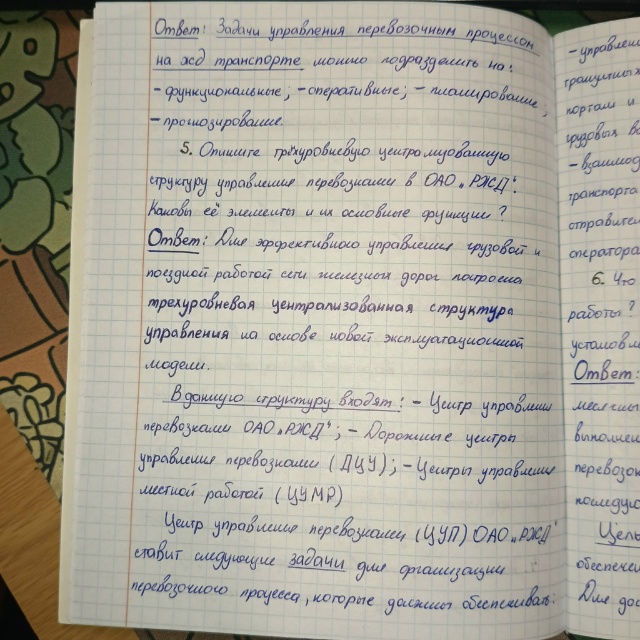 Ответ: Задачи управления перевозочным процессом
на жд транспорте можно подразделить на:
- функциональные; - оперативные; - планирование;
- прогнозирование.
5. Опишите трёхуровневую централизованную
структуру управления перевозками в ОАО „РЖД".
Каковы её элементы и их основные функции?
Ответ: Для эффективного управления грузовой и
поездной работой сети железных дорог построена
трехуровневая централизованная структура
управления на основе новой эксплуатационной
модели.
В данную структуру входят: - Центр управления
перевозками ОАО „РЖД"; - Дорожные центры
управления перевозками (ДЦУ); - Центры управления
местной работой (ЦУМР)
Центр управления перевозками (ЦУП) ОАО „РЖД"
ставит следующие задачи для организации
перевозочного процесса, которые должны обеспечивать:
- управлен
портам и
грузовых
- взаимод
транспорта
отправител
оператора
6. Что
работы?
установл
Ответ:
выполнен
перевозок
последую
Цель
обеспечен
Для дос